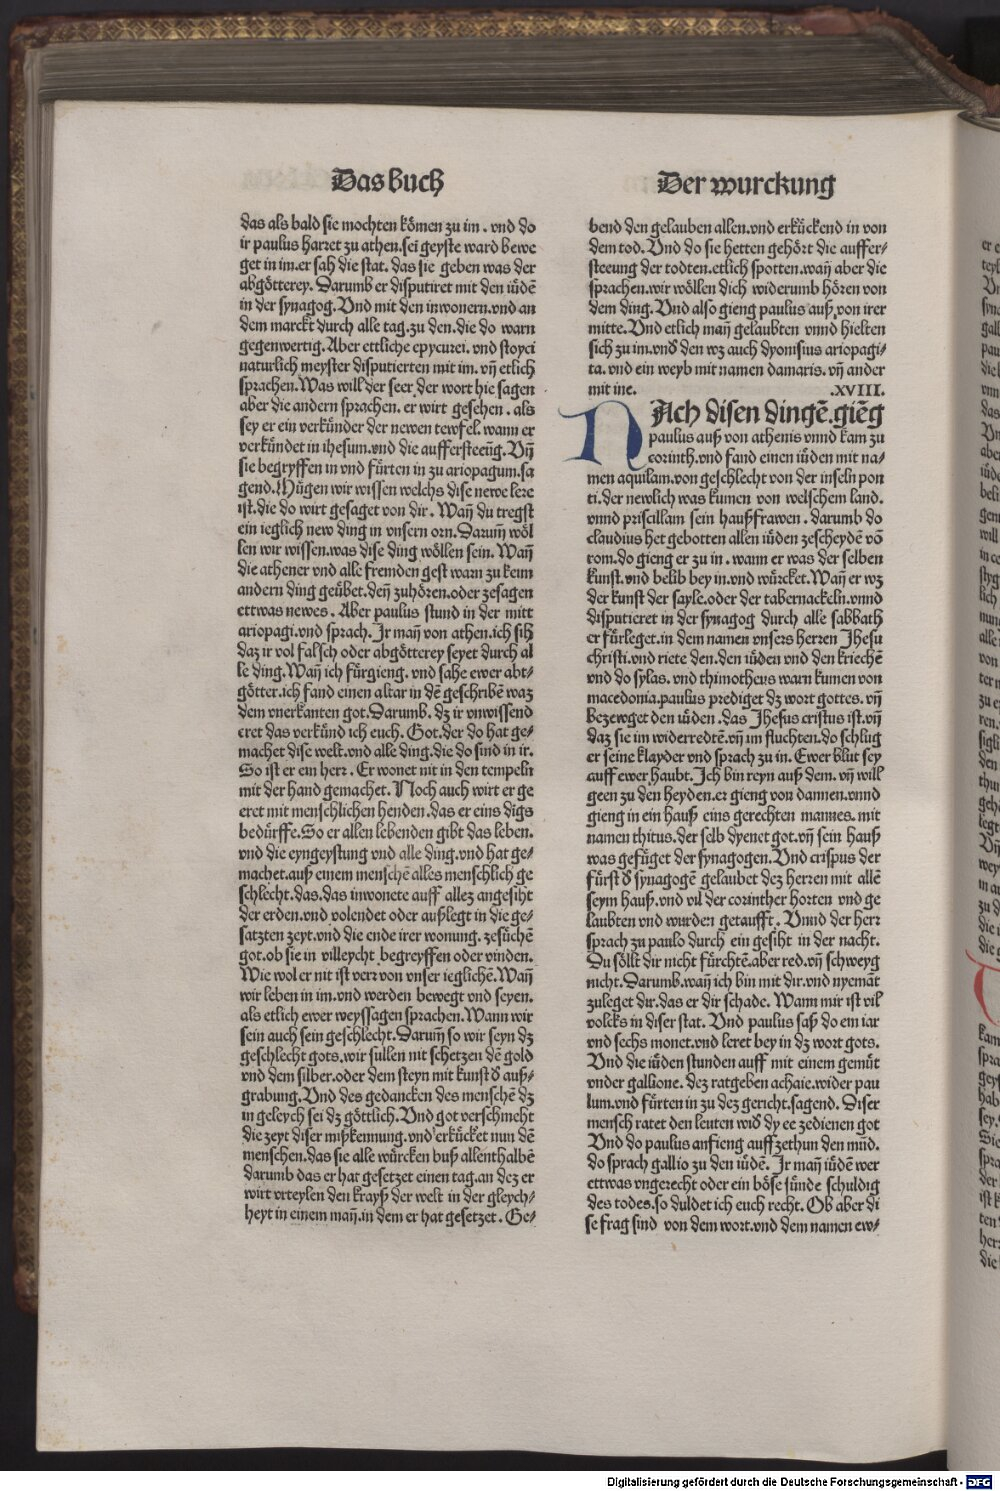 Das buch
Der wurckung
das als bald sie mochten kömen zu im. vnd do
ir paulus harret zu athen. sei geyste ward bewe
get in im. er sah die stat. das sie geben was der
abgötterey. Darumb er disputiret mit den iůdē
in der synagog. Vnd mit den inwonern. vnd an
dem marckt durch alle tag. zu den. die do warn
gegenwertig. Aber ettliche epycurei. vnd stoyci
naturlich meyster disputierten mit im. vñ etlich
sprachen. Was will der seer der wort hie sagen
aber die andern sprachen. er wirt gesehen. als
sey er ein verkünder der newen tewfel. wann er
verkündet in ihesum. vnd die aufferstee̅ug. Vñ
sie begryffen in vnd fürten in zu ariopagum. sa
gend. Mügen wir wissen welchs dise newe lere
ist. die do wirt gesaget von dir. Wañ du tregst
ein ieglich new ding in vnsern orn. Darum̅ wöl
len wir wissen. was dise ding wöllen sein. Wañ
die athener vnd alle fremden gest warn zu keim
andern ding geübet. deñ zuhören. oder zesagen
ettwas newes. Aber paulus stund in der mitt
ariopagi. vnd sprach. Ir mañ von athen. ich sih
daz ir vol falsch oder abgötterey seyet durch al
le ding. Wañ ich fürgieng. vnd sahe ewer abt⸗
götter. ich fand einen altar in dē geschribē waz
dem vnerkanten got. Darumb. dz ir vnwissend
eret das verkünd ich euch. Got. der do hat ge⸗
machet dise welt. vnd alle ding. die do sind in ir.
So ist er ein herr. Er wonet nit in den tempeln
mit der hand gemachet. Noch auch wirt er ge
eret mit menschlichen henden. das er eins digs
bedürffe. So er allen lebenden gibt das leben.
vnd die eyngeystung vnd alle ding. vnd hat ge⸗
machet. auß einem menschē alles menschlich ge
schlecht. das. das inwonete auff allez angesiht
der erden. vnd volendet oder außlegt in die ge⸗
satzten zeyt. vnd die ende irer wonung. zesůchē
got. ob sie in villeycht begreyffen oder vinden.
Wie wol er nit ist verr von vnser ieglichē. Wañ
wir leben in im. vnd werden bewegt vnd seyen.
als etlich ewer weyssagen sprachen. Wann wir
sein auch sein geschlecht. Darum̅ so wir seyn dz
geschlecht gots. wir sullen nit schetzen dē gold
vnd dem silber. oder dem steyn mit kunst d̕ auß⸗
grabung. Vnd des gedancken des menschē dz
in geleych sei dz göttlich. Vnd got verschmeht
die zeyt diser mißkennung. vnd erkücket nun dē
menschen. das sie alle würcken buß allenthalbē
darumb das er hat gesetzet einen tag. an dez er
wirt vrteylen den krayß der welt in der gleych⸗
heyt in einem mañ. in dem er hat gesetzet. Ge⸗
bend den gelauben allen. vnd erkückend in von
dem tod. Vnd do sie hetten gehört die auffer⸗
steeung der todten. etlich spotten. wañ aber die
sprachen. wir wöllen dich widerumb hören von
dem ding. Vnd also gieng paulus auß von irer
mitte. Vnd etlich mañ gelaubten vnnd hielten
sich zu im. vnd̕ den wz auch dyonisius ariopagi⸗
ta. vnd ein weyb mit namen damaris. vñ ander
mit ine. .XVIII.
NAch disen dingē. giēg
paulus auß von athenis vnnd kam zu
corinth. vnd fand einen iůden mit na⸗
men aquilam. von geschlecht von der inseln pon
ti. der newlich was kumen von welschem land.
vnnd priscillam sein haußfrawen. darumb do
claudius het gebotten allen iůden zescheydē vō
rom. do gieng er zu in. wann er was der selben
kunst. vnd belib bey in. vnd würcket. Wañ er wz
der kunst der sayle. oder der tabernackeln. vnnd
disputieret in der synagog durch alle sabbath
er fürleget. in dem namen vnsers herren Jhesu
christi. vnd riete den. den iůden vnd den kriechē
vnd do sylas. vnd thimotheus warn kumen von
macedonia. paulus prediget dz wort gottes. vñ
bezewget den iůden. das Jhesus cristus ist. vñ
daz sie im widerredtē. vñ im fluchten. do schlug
er seine klayder vnd sprach zu in. Ewer blut sey
auff ewer haubt. Ich bin reyn auß dem. vñ will
geen zu den heyden. er gieng von dannen. vnnd
gieng in ein hauß eins gerechten mannes. mit
namen thitus. der selb dyenet got. vñ sein hauß
was gefüget der synagogen. Vnd crispus der
fürst d̕ synagogē gelaubet dez herren mit allē
seym hauß. vnd vil der corinther horten vnd ge
laubten vnd wurden getaufft. Vnnd der herr
sprach zu paulo durch ein gesiht in der nacht.
Du söllt dir nicht fürchtē. aber red. vñ schweyg
nicht. Darumb. wañ ich bin mit dir. vnd nyemāt
zuleget dir. das er dir schade. Wann mir ist vil
volcks in diser stat. Vnd paulus saß do ein iar
vnd sechs monet. vnd leret bey in dz wort gots.
Vnd die iůden stunden auff mit einem gemüt
vnder gallione. dez ratgeben achaie. wider pau
lum. vnd fürten in zu dez gericht. sagend. Diser
mensch ratet den leuten wid̕ dy ee zedienen got
Vnd do paulus anfieng auffzethun den mūd.
do sprach gallio zu den iůdē. Ir mañ iůdē wer
ettwas vngerecht oder ein böse sünde schuldig
des todes. so duldet ich euch recht. Ob aber di
se frag sind von dem wort. vnd dem namen ew⸗
Digitalisierung gefördert durch die Deutsche Forschungsgemeinschaft - DFG